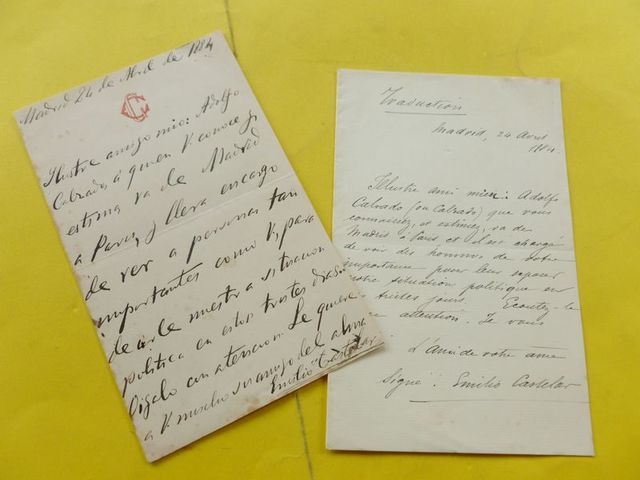 Madrid 24 de Abril de 1884
Ilustre amigo mio: Adolfo
Calzado, á quien V. conoce y
estima va de Madrid
a Paris, y lleva encargo
de ver a personas tan
importantes como V, para
decirle nuestra situacion
politica en estos tristes dias.
Oigalo con atencion. Le quiere
a V. mucho su amigo del alma
Emilio Castelar
Traduction
Madrid, 24 Avril
1884
Illustre ami mien: Adolfo
Calzado (ou Calzado) que vous
connaissez, et estimez, va de
Madrid à Paris, et est chargé
de voir des hommes de votre
importance pour leur exposer
notre situation politique en
tristes jours. Ecoutez-le
attention. Je vous
L'ami de votre âme
Signé: Emilio Castelar